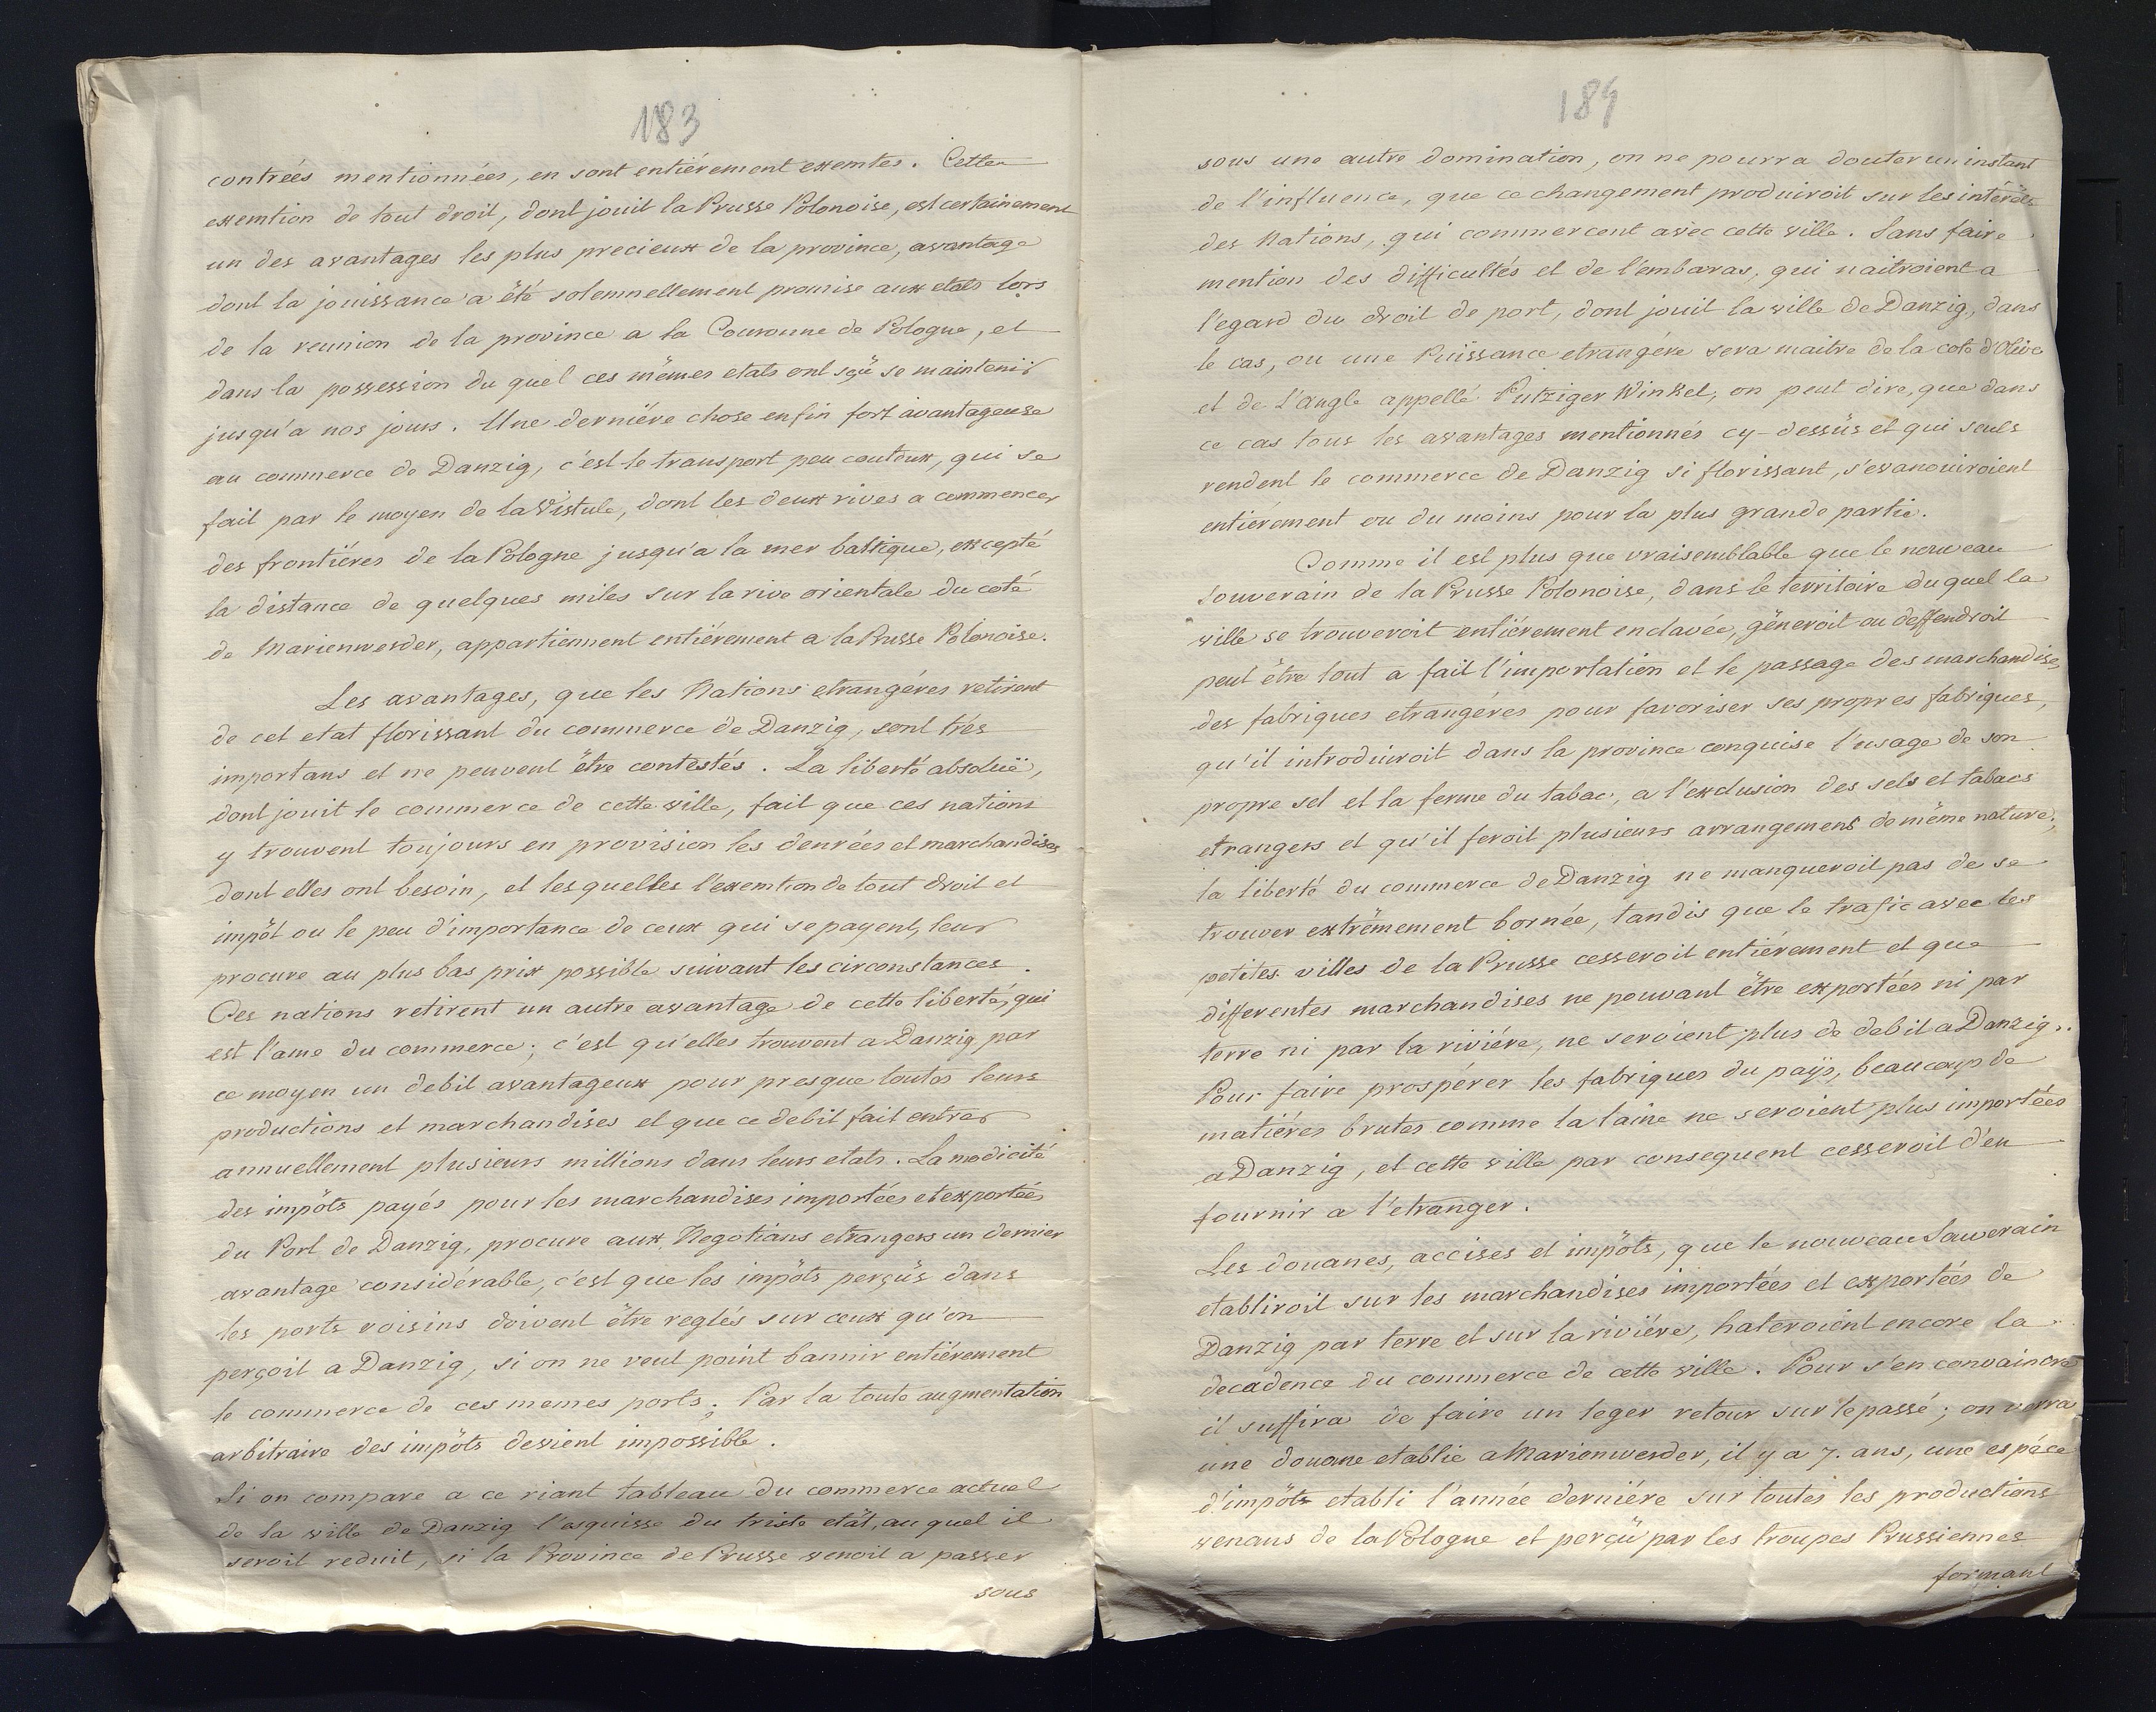 183
contrées mentionnées, en sont entiérement exemtes. Cette
exemtion de tout droit, dont jouit la Prusse Polonoise, est certainement
un des avantages les plus precieux de la province, avantage
dont la jouissance a été solemnellement promise aux etats lors
de la reunion de la province a la Couronne de Pologne, et
dans la possession du quel ces mêmes etats ont sçû se maintenir
jusqu'a nos jours. Une derniére chose enfin fort avantageuse
au commerce de Danzig, c'est le transport peu couteux, qui se
fait par le moyen de la Vistule, dont les deux rives a commencer
des frontiéres de la Pologne jusqu'a la mer baltique, excepté
la distance de quelques miles sur la rive orientale du coté
de Marienwerder, appartiennent entiérement a la Prusse Polonoise.
Les avantages, que les Nations etrangéres retirent
de cet etat florissant du commerce de Danzig, sont trés
importans et ne peuvent être contestés. La liberté absoluë,
dont jouit le commerce de cette ville, fait que ces nations
y trouvent toujours en provision les denrées et marchandises
dont elles ont besoin, et les quelles l'exemtion de tout droit et
impôt ou le peu d'importance de ceux qui se payent, leur
procure au plus bas prix possible suivant les circonstances.
Ces nations retirent un autre avantage de cette liberté, qui
est l'ame du commerce; c'est qu'elles trouvent a Danzig par
ce moyen un debit avantageux pour presque toutes leurs
productions et marchandises et que ce debit fait entrer
annuellement plusieurs millions dans leurs etats. La modicité
des impôts payés pour les marchandises importées et exportées
du Port de Danzig, procure aux Negotians etrangers un dernier
avantage considérable, c'est que les impôts perçûs dans
les ports voisins doivent être reglés sur ceux qu'on
perçoit a Danzig, si on ne veut point bannir entiérement
le commerce de ces memes ports. Par la toute augmentation
arbitraire des impôts devient impossible.
Si on compare a ce riant tableau du commerce actuel
de la ville de Danzig l'esquisse du triste etât, au quel il
seroit reduit, si la Province de Prusse venoit a passer
sous
184
sous une autre domination, on ne pourra douter un instant
de l'influence, que ce changement produiroit sur les intérêts
des Nations, qui commercent avec cette ville. Sans faire
mention des difficultés et de l'embaras, qui naitroient a
l'egard du droit de port, dont jouit la ville de Danzig, dans
le cas, ou une Puissance etrangére sera maitre de la cote d'Olive
et de L'angle appellé Putziger Winkel, on peut dire, que dans
ce cas tous les avantages mentionnés cy-dessüs et qui seuls
rendent le commerce de Danzig si florissant, s'evanouiroient
entiérement ou du moins pour la plus grande partie.
Comme il est plus que vraisemblable que le nouveau
Souverain de la Prusse Polonoise, dans le territoire du quel la
ville se trouveroit entiérement enclavée, gêneroit ou deffendroit
peut être tout a fait l'importation et le passage des marchandises
des fabriques etrangéres pour favoriser ses propres fabriques,
qu'il introduiroit dans la province conquise l'usage de son
propre sel et la ferme du tabac, a l'exclusion des sels et tabacs
etrangers et qu'il feroit plusieurs arrangemens de même nature;
la liberté du commerce de Danzig ne manqueroit pas de se
trouver extrêmement bornée, tandis que le trafic avec les
petites villes de la Prusse cesseroit entiérement et que
differentes marchandises ne pouvant être exportées ni par
terre ni par la riviére, ne seroient plus de debit a Danzig.
Pour faire prospérer les fabriques du païs, beaucoup de
matiéres brutes comme la laine ne seroient plus importées
a Danzig, et cette ville par consequent cesseroit d'en
fournir a l'etranger.
Les douanes, accises et impôts, que le nouveau Souverain
etabliroit sur les marchandises importées et exportées de
Danzig par terre et sur la riviére, hateroient encore la
decadence du commerce de cette ville. Pour s'en convaincre
il suffira de faire un leger retour sur le passé; on verra
une douane etablie a Marienwerder, il y a 7. ans, une espéce
d'impôts etabli l'année derniére sur toutes les productions
venans de la Pologne et perçû par les troupes Prussiennes
formant